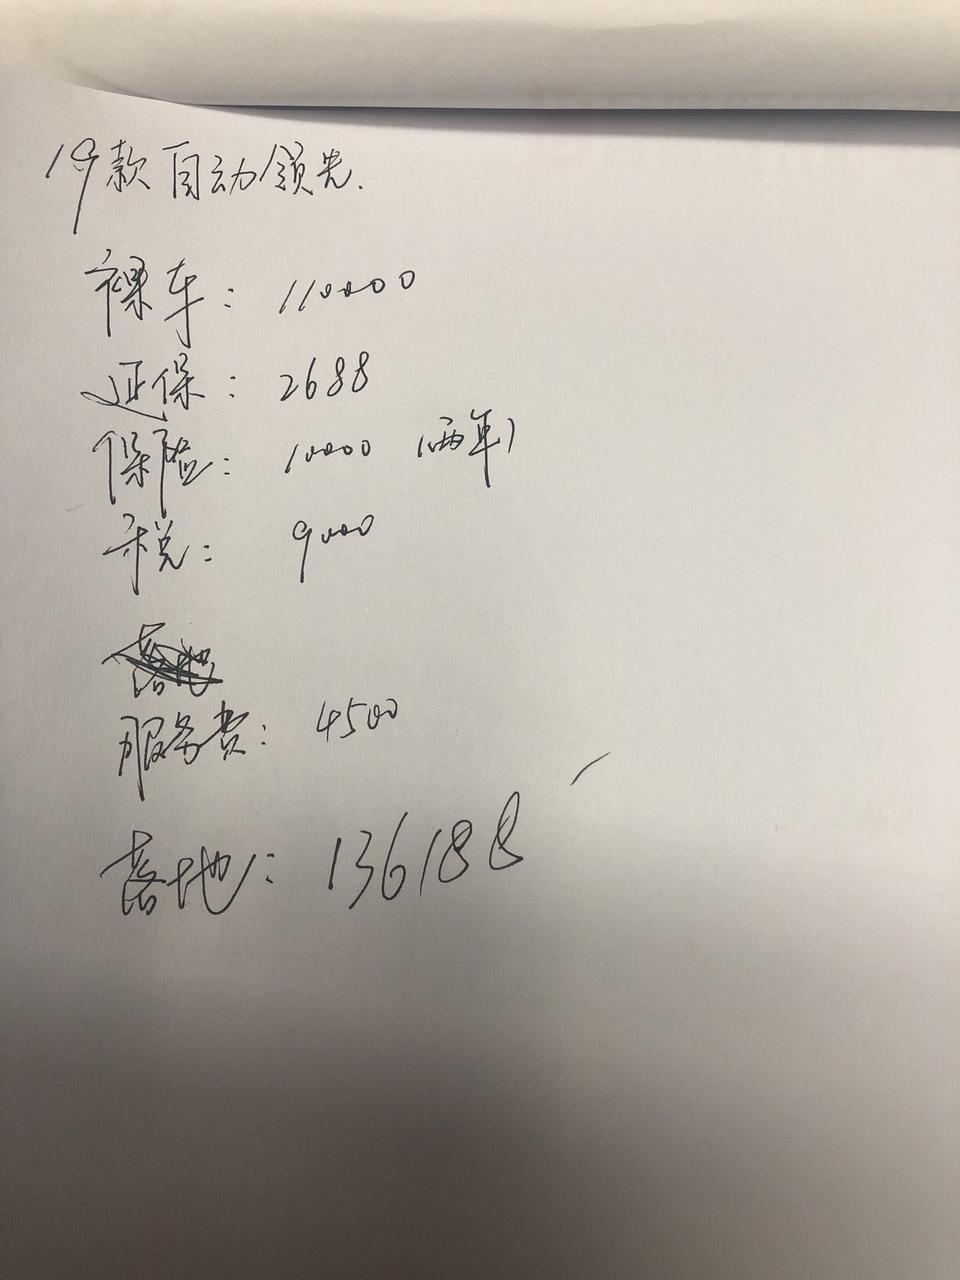 19款自动领先.
裸车: 110000
延保: 2688
保险: 10000 (两年)
税: 9000
服务费: 4500
落地: 136188